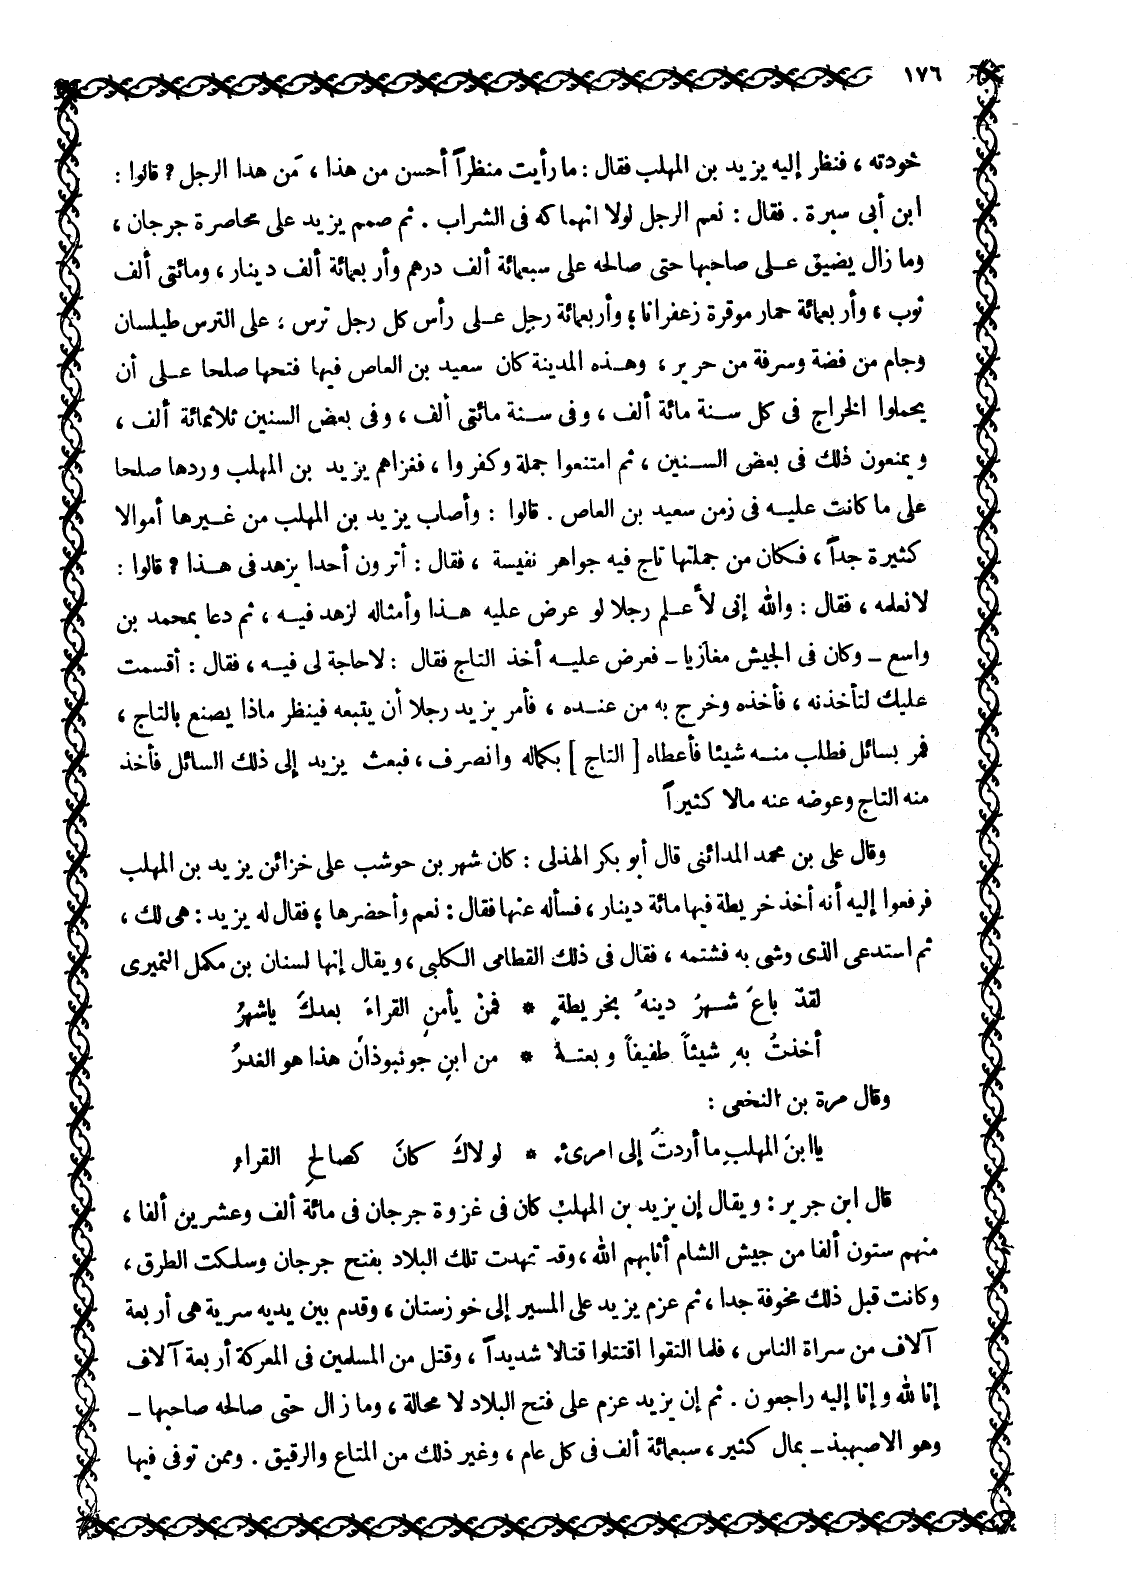 ١٧٦
خودته ، فنظر إليه يزيد بن المهلب فقال : ما رأيت منظراً أحسن من هذا ، مَن هذا الرجل ؟ قالوا :
ابن أبى سبرة . فقال : نعم الرجل لولا انهماكه فى الشراب . ثم صمم يزيد على محاصرة جرجان ،
وما زال يضيق عـلى صاحبها حتى صالحه على سبعمائة ألف درهم وأربعمائة ألف دينار ، ومائتى ألف
ثوب ، وأربعمائة حمار موقرة زعفرانا ، وأربعمائة رجل عـلى رأس كل رجل ترس ، على الترس طيلسان
وجام من فضة وسرفة من حرير ، وهـذه المدينة كان سعيد بن العاص فيها فتحها صلحا عـلى أن
يحملوا الخراج فى كل سـنة مائة ألف ، وفى سـنة مائتى ألف ، وفى بعض السنين ثلاثمائة ألف ،
ويمنعون ذلك فى بعض السـنين ، ثم امتنعوا جملة وكفروا ، فغزاهم يزيد بن المهلب وردها صلحا
على ما كانت عليـه فى زمن سعيد بن العاص . قالوا : وأصاب يزيد بن المهلب من غـيرها أموالا
كثيرة جداً ، فـكان من جملتها تاج فيه جواهر نفيسة ، فقال : أترون أحدا يزهد فى هـذا ؟ قالوا :
لا نعلمه ، فقال : والله إنى لأعـلم رجلا لو عرض عليه هـذا وأمثاله لزهد فيـه ، ثم دعا بمحمد بن
واسع ـ وكان فى الجيش مغازيا ـ فعرض عليـه أخذ التاج فقال : لا حاجة لى فيـه ، فقال : أقسمت
عليك لتأخذنه ، فأخذه وخرج به من عنـده ، فأمر يزيد رجلا أن يتبعه فينظر ماذا يصنع بالتاج ،
فمر بسائل فطلب منـه شيئا فأعطاه [ التاج ] بكماله وانصرف ، فبعث يزيد إلى ذلك السائل فأخذ
منه التاج وعوضه عنه مالا كثيراً
وقال على بن محمد المدائنى قال أبو بكر الهذلى : كان شهر بن حوشب على خزائن يزيد بن المهلب
فرفعوا إليه أنه أخذ خريطة فيها مائة دينار ، فسأله عنها فقال : نعم وأحضرها ، فقال له يزيد : هى لك ،
ثم استدعى الذى وشى به فشتمه ، فقال فى ذلك القطامى الـكلبى ، ويقال إنها لسنان بن مكمل النميرى
لقدْ باعَ شـهرُ دينهُ بخريطةٍ * فمنْ يأمنِ القراءَ بعدكَ ياشهرُ
أخذتُ بهِ شيئاً طفيفاً وبعتـهُ * من ابنِ جونبوذانَ هذا هو الغدرُ
وقال مرة بن النخعى :
ياابنَ المهلبِ ما أردتُ إلى امرئٍ * لولاكَ كانَ كصالحِ القراءِ
قال ابن جرير : ويقال إن يزيد بن المهلب كان فى غزوة جرجان فى مائة ألف وعشرين ألفا ،
منهم ستون ألفا من جيش الشام أثابهم الله ، وقد تمهدت تلك البلاد بفتح جرجان وسلـكت الطرق ،
وكانت قبل ذلك مخوفة جدا ، ثم عزم يزيد على المسير إلى خوزستان ، وقدم بين يديه سرية هى أربعة
آلاف من سراة الناس ، فلما التقوا اقتتلوا قتالا شديداً ، وقتل من المسلمين فى المعركة أربعة آلاف
إنا لله وإنا إليه راجعون . ثم إن يزيد عزم على فتح البلاد لا محالة ، وما زال حتى صالحه صاحبها ـ
وهو الاصبهبذ ـ بمال كثير ، سبعمائة ألف فى كل عام ، وغير ذلك من المتاع والرقيق . وممن توفى فيها